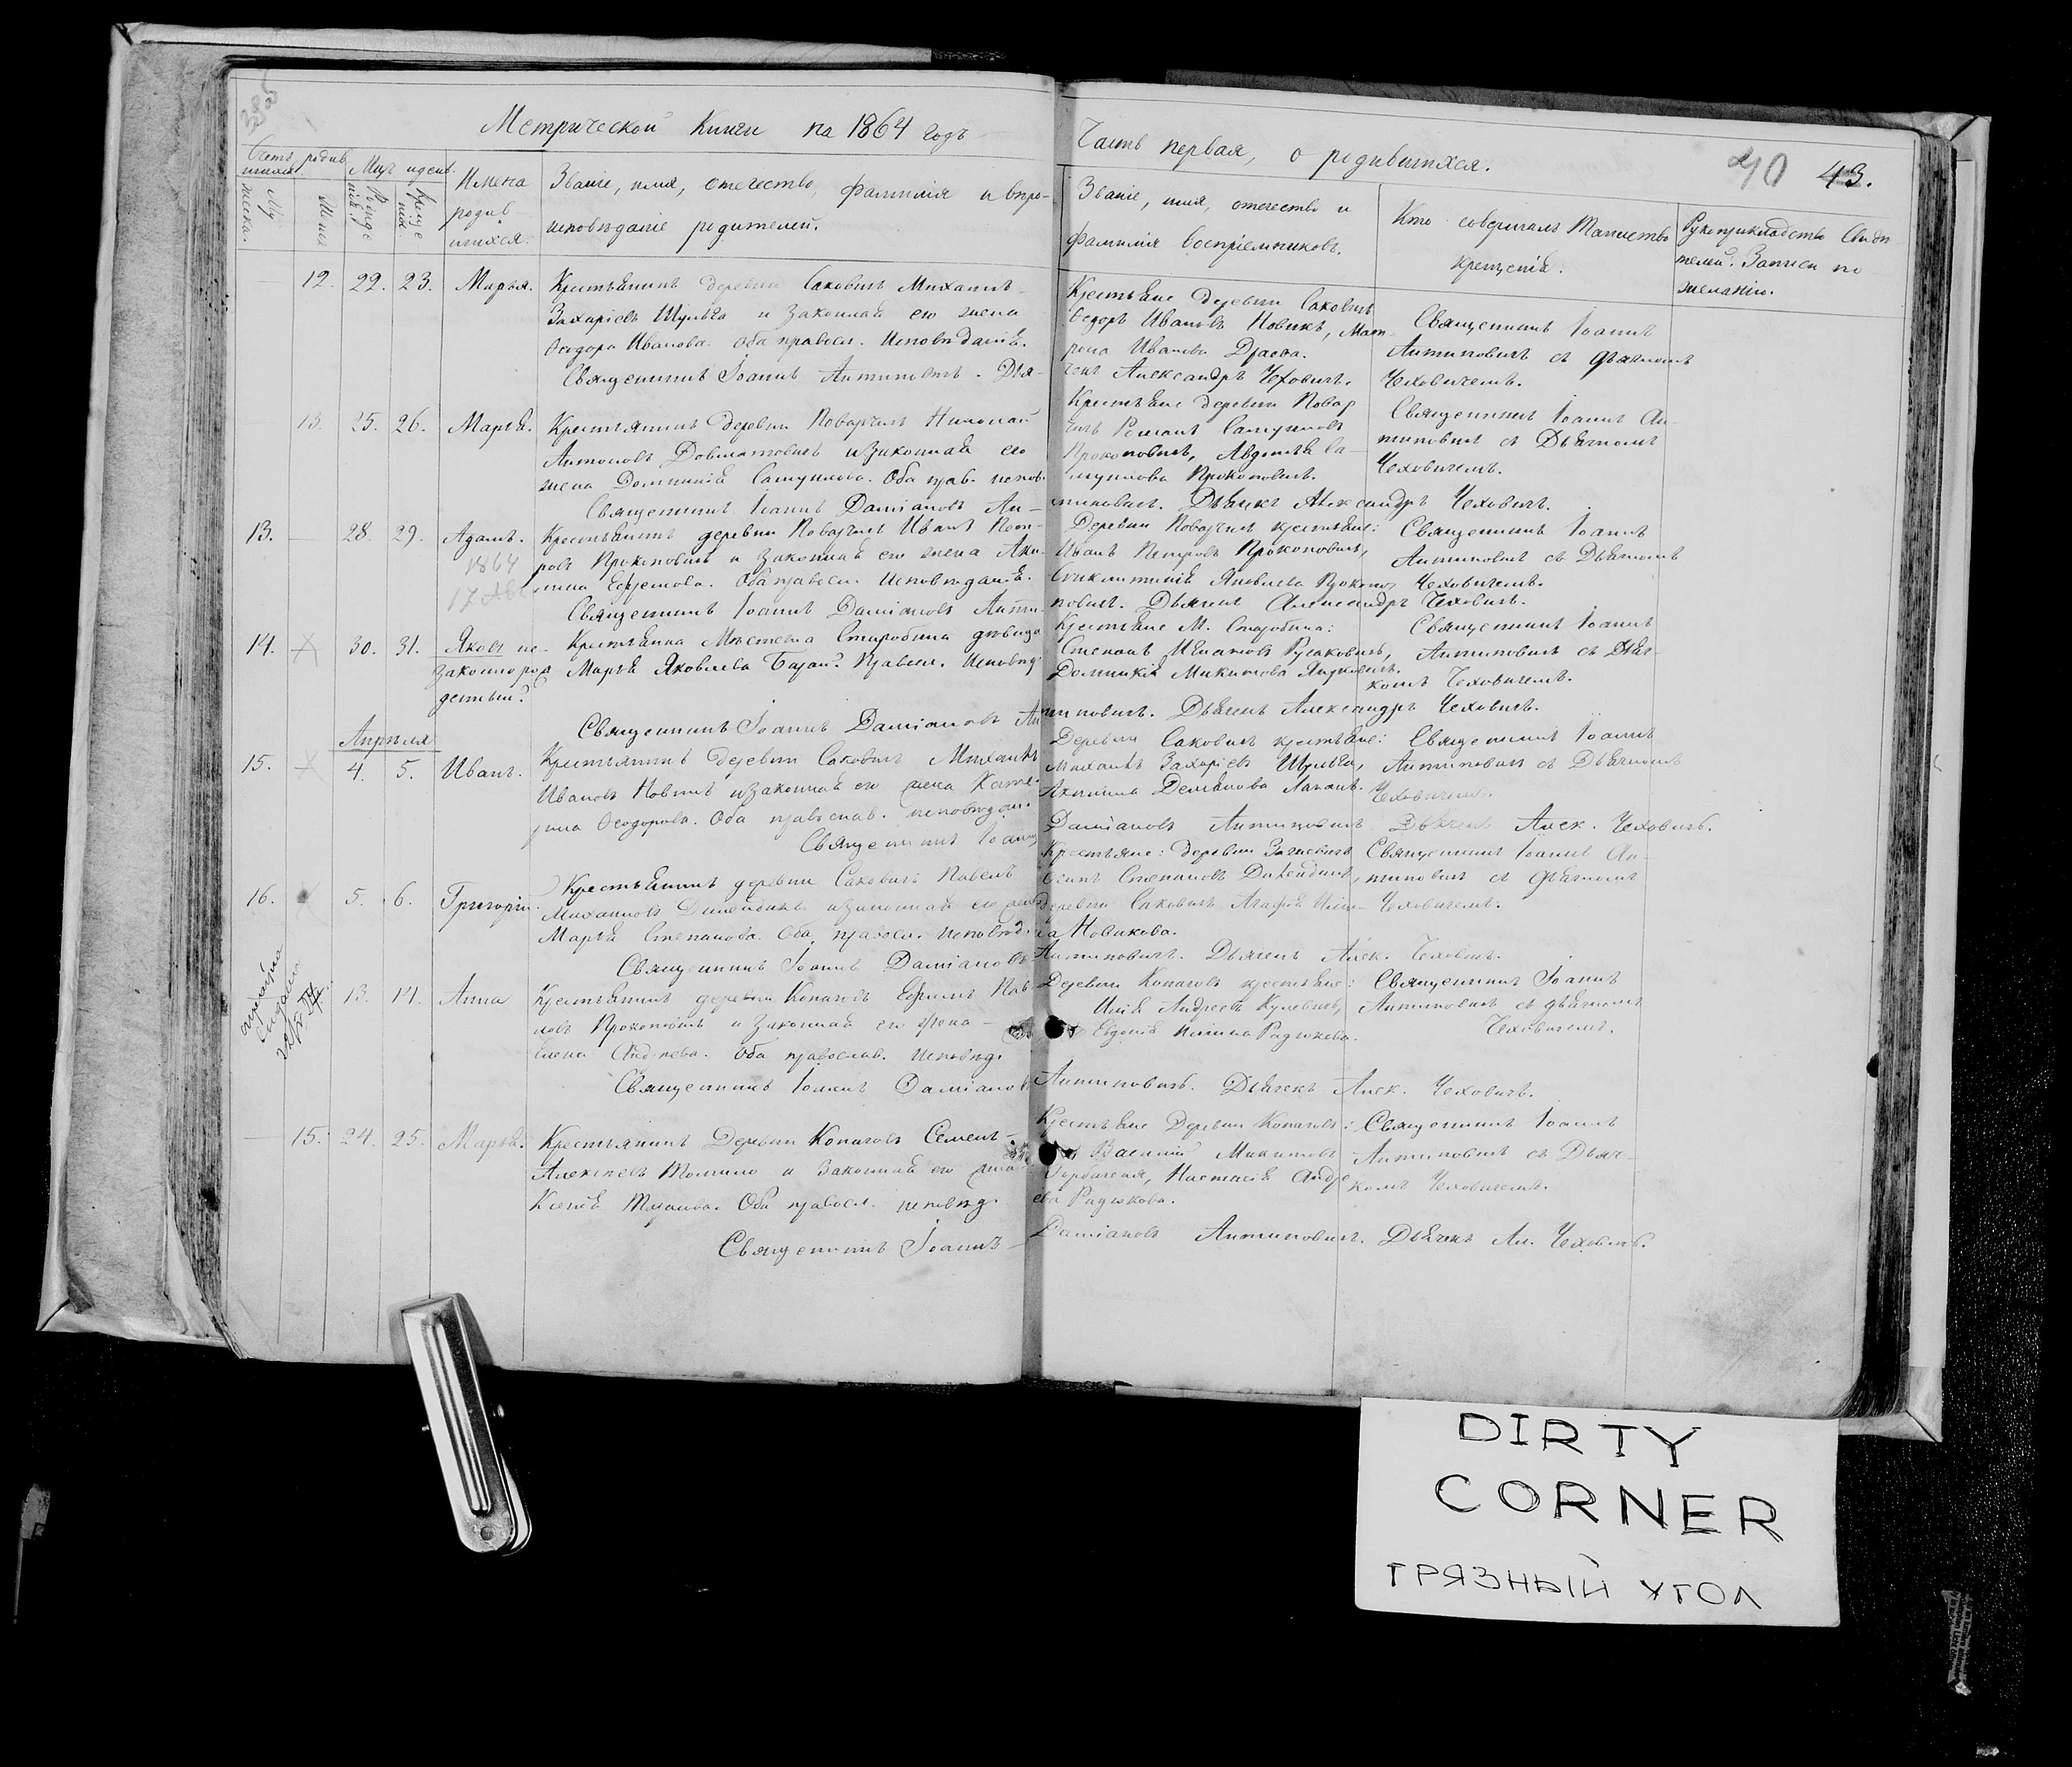 Метрической Книги на 1864 годъ
Часть первая, о родившихся.
40 43.
Счетъ родив
шихся.
Муж
Женск
Мѣс. и день
Рожде
нія.
Креще
нія.
Имена
родив-
шихся.
Званіе, имя, отечество, фамилія и вѣро-
исповѣданіе родителей.
Званіе, имя, отечество и
фамилія воспріемниковъ.
Кто совершалъ Таинство
крещенія.
Рукоприкладство Свидѣ
телей. Записи по
желанію.
12. 22. 23. Марья.
Крестьянинъ деревни Саковичъ Михаилъ
Захаріевъ Шульга и законная его жена
Ѳеодора Иванова. Оба правосл. Исповѣданія.
Священникъ Іоаннъ Антиповичъ. Дья-
Крестьяне деревни Саковичъ
Ѳедоръ Ивановъ Новикъ, Мат
рона Иванова
чекъ Александръ Чеховичъ.
Священникъ Іоаннъ
Антиповичъ съ Дьячкомъ
Чеховичемъ.
13. 25. 26. Марья.
Крестьянинъ деревни Поварчичъ Николай
Антоновъ Довматовичъ и законная его
жена Домникія Самуилова. Оба прав. испов.
Священникъ Іоаннъ Даміановъ Ан-
Крестьяне деревни Повар
чичъ Романъ Самуиловъ
Прокоповичъ, Авдотья Са-
муилова Прокоповичъ.
типовичъ. Дьячекъ Александръ Чеховичъ.
Священникъ Іоаннъ Ан-
типовичъ съ Дьячкомъ
Чеховичемъ.
13. 28. 29. Адамъ.
1864
Крестьянинъ деревни Поварчичъ Иванъ Пет-
ровъ Прокоповичъ и законная его жена Аку-
лина Ефремова. Оба правосл. Исповѣданія.
Священникъ Іоаннъ Даміановъ Анти-
Деревни Поварчичъ крестьяне:
Иванъ Петровъ Прокоповичъ,
Яковлева Прокопо
повичъ. Дьячекъ Александръ Чеховичъ.
Священникъ Іоаннъ
Антиповичъ съ Дьячкомъ
Чеховичемъ.
14. 30. 31. Яковъ не-
законнорож
денный.
Крестьянка Мѣстечка Старобина дѣвица
Марья Яковлева Базан. Правосл. Исповѣд.
Священникъ Іоаннъ Даміановъ Ан
Крестьяне М. Старобина:
Степанъ Русаковичъ,
Домникія Микитова
типовичъ. Дьячекъ Александръ Чеховичъ.
Священникъ Іоаннъ
Антиповичъ съ Дьяч-
комъ Чеховичемъ.
Апрѣля
15. 4. 5. Иванъ.
Крестьянинъ деревни Саковичъ Михаилъ
Ивановъ Новикъ и законная его жена Кате-
рина Ѳеодорова. Оба православ. исповѣдан.
Священникъ Іоаннъ
Деревни Саковичъ крестьяне:
Михаилъ Захаріевъ Шульга,
Акилина Демьянова Лапанъ.
Даміановъ Антиповичъ. Дьячекъ Алек. Чеховичъ.
Священникъ Іоаннъ
Антиповичъ съ Дьячкомъ
Чеховичемъ.
16. 5. 6. Григорій.
Крестьянинъ деревни Саковичъ Павелъ
Михаиловъ и законная его жена
Марья Степанова. Оба правосл. исповѣд.
Священникъ Іоаннъ Даміановъ
Крестьяне: деревни
Степановъ
деревни Саковичъ Агафья
Новикова.
Антиповичъ. Дьячекъ Алек. Чеховичъ.
Священникъ Іоаннъ Ан-
типовичъ съ Дьячкомъ
Чеховичемъ.
13. 14. Анна
Крестьянинъ деревни Копачовъ Ефримъ Пав
ловъ Прокоповичъ и законная его жена
Елена Андреева. Оба православ. исповѣд.
Священникъ Іоаннъ Даміановъ
Деревни Копачовъ крестьяне:
Илія Андреевъ Кулевичъ,
Евдокія Радюкова.
Антиповичъ. Дьячекъ Алек. Чеховичъ.
Священникъ Іоаннъ
Антиповичъ съ Дьячкомъ
Чеховичемъ.
15. 24. 25. Марья.
Крестьянинъ Деревни Копачовъ Семенъ
Алексѣевъ Томило и законная его жена
Ксенія Оба правосл. исповѣд.
Священникъ Іоаннъ
Крестьяне Деревни Копачовъ:
Василій Микитовъ
Горбаченя, Настасія Андре
ева Радюкова.
Даміановъ Антиповичъ. Дьячекъ Ал. Чеховичъ.
Священникъ Іоаннъ
Антиповичъ съ Дьяч-
комъ Чеховичемъ.
DIRTY
CORNER
ГРЯЗНЫЙ УГОЛ